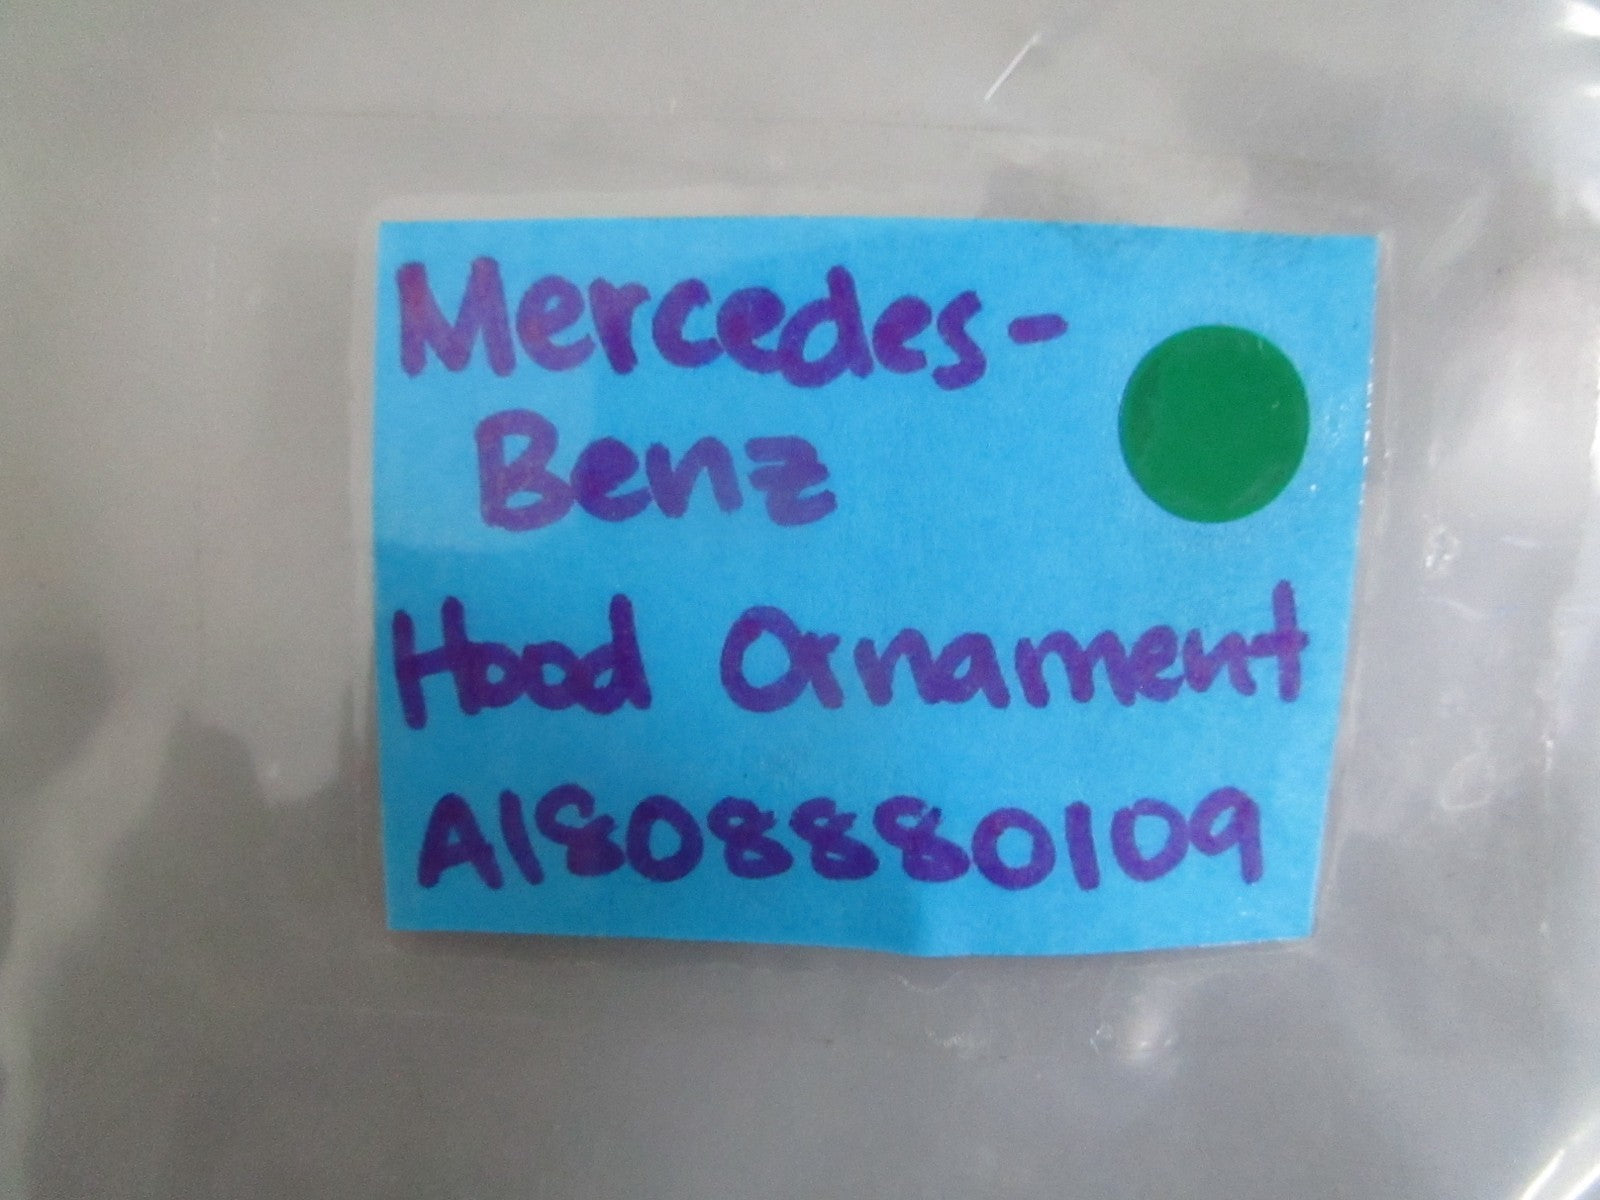 Mercedes-
Benz
Hood Ornament
A1808880109